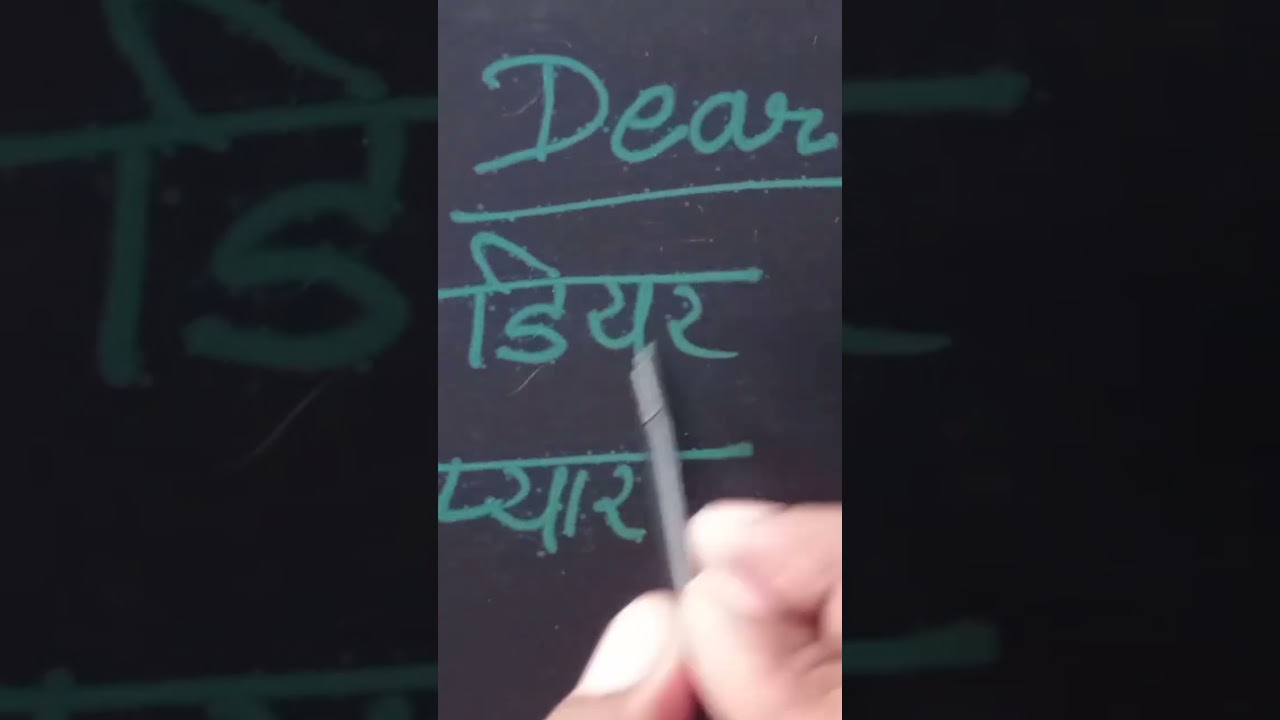 Dear
डियर
प्यार